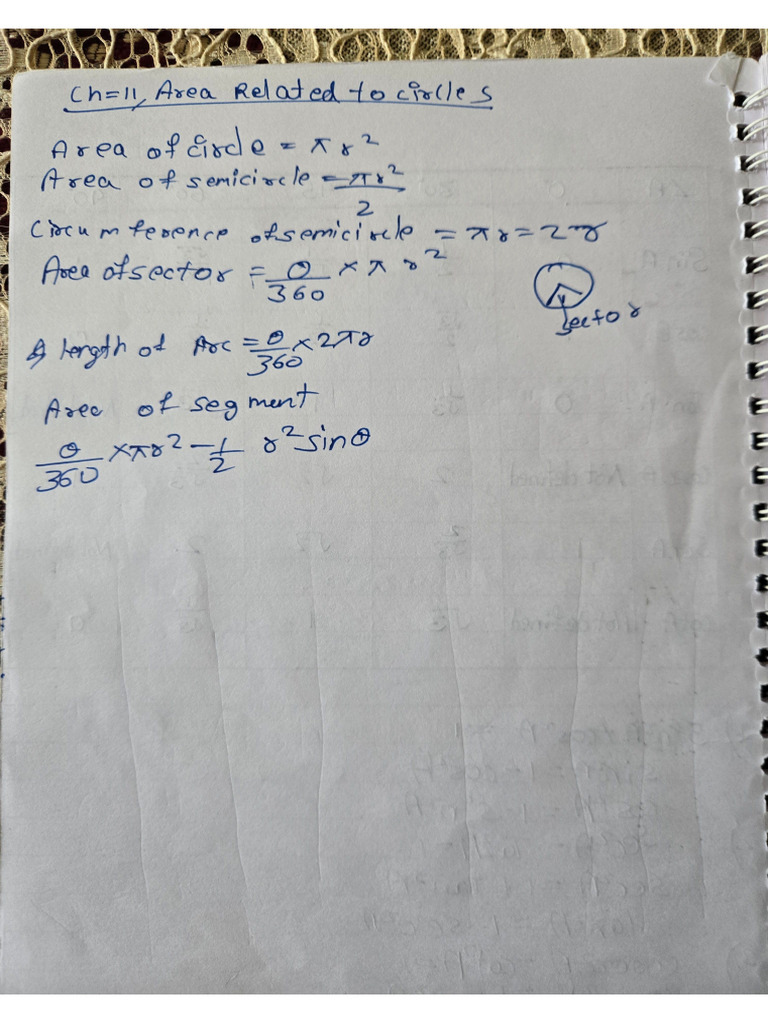 Ch=11, Area Related to circles
Area of circle = πr²
Area of semicircle = πr²/2
Circumference of semicircle = πr = 2πr
Area of sector = θ/360 × π r²
sector
length of Arc = θ/360 × 2πr
Area of segment
θ/360 × πr² - 1/2 r² sinθ